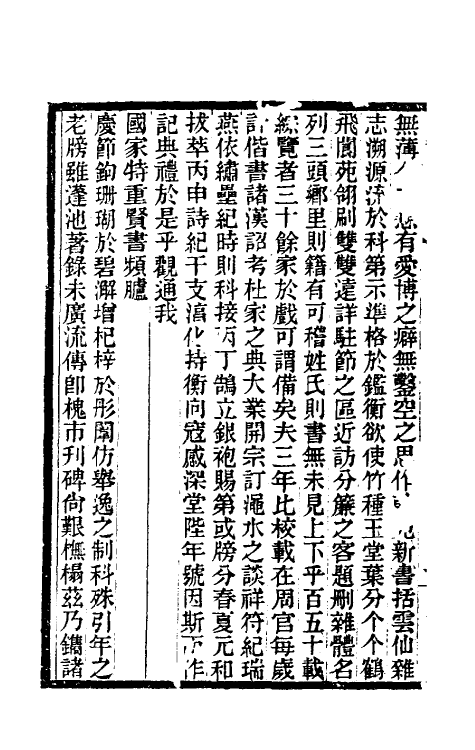 無薄人有愛博之癖無鑿空之思作新書括雲仙雜
志溯源流於科第示準格於鑑衡欲使竹種玉堂葉分个个鶴
飛閬苑翎刷雙雙遠詳駐節之區近訪分簾之客題刪雜體名
列三頭鄉里則籍有可稽姓氏則書無未見上下乎百五十載
綜覽者三十餘家於戲可謂備矣夫三年比校載在周官每歲
計偕書諸漢詔考杜家之典大業開宗訂澠水之談祥符紀瑞
燕依繡壘紀時則科接丙丁鵠立銀袍賜第或牓分春夏元和
拔萃丙申詩紀干支滇化持衡向寇感深堂陛年號因斯而作
記典禮於是乎觀通我
國家特重賢書頻臚
慶節鉤珊瑚於碧澥增杞梓於彤闈仿舉逸之制科殊引年之
老牓雖蓬池著錄未廣流傳卽槐市刊碑尙艱橅榻茲乃鐫諸